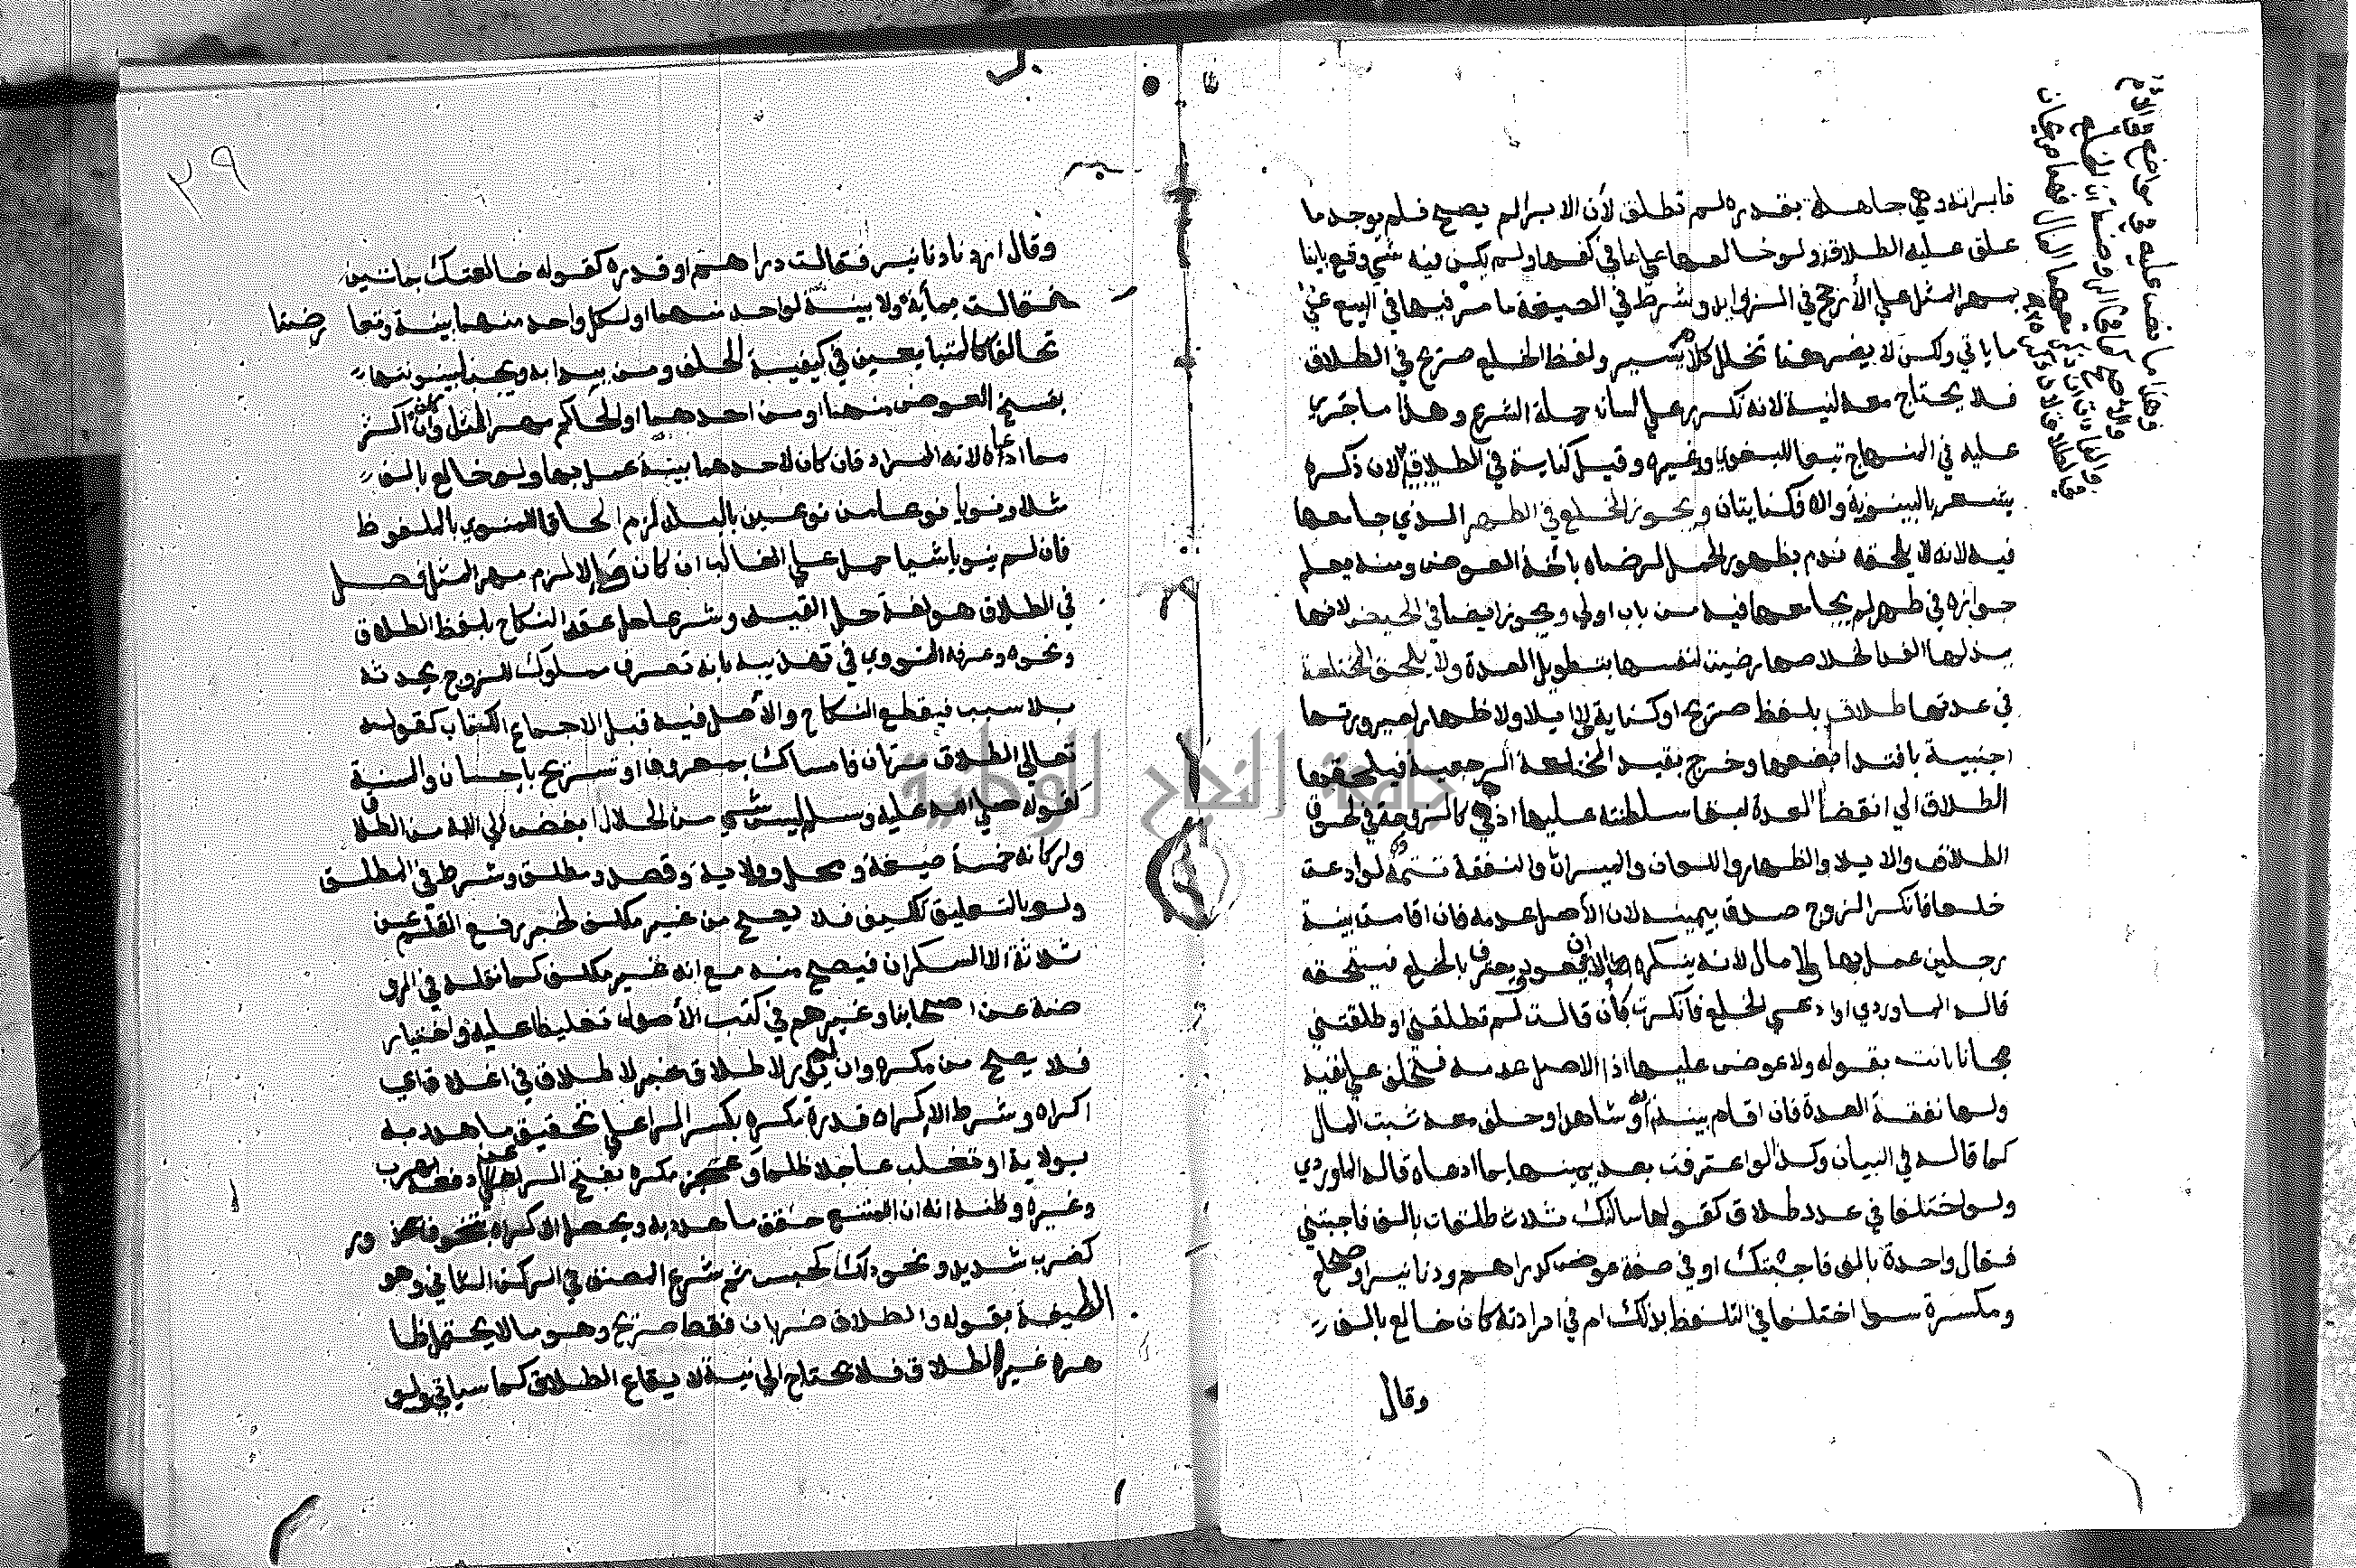 فابراته وهي جاهلة بقدره لم تطلق لأن الابرا لم يصح فلم يوجد ما
علق عليه الطلاق ولو خالعها علي ما في كفها ولم يكن فيه شي وقع باينا
بمهر المثل علي الأرجح في الزوايد وشرط في الصيغة ما مر فيها في البيع علي
ما ياتي ولكن لا يضر هنا تخلل كلام يسير ولفظ الخلع صريح في الطلاق
فلا يحتاج معه لنية لانه تكرر علي لسان حملة الشرع وهذا ما جري
عليه في المنهاج تبعا للبغوي وغيره وقيل كناية في الطلاق لان ذكره
يشعر بالبينونة والا فكنايتان ويجوز الخلع في الطهر الذي جامعها
فيه لانه لا يلحقه ندم بظهور الحمل لرضاه باخذ العوض ومنه يعلم
جوازه في طهر لم يجامعها فيه من باب اولي ويجوز ايضا في الحيض لانها
ببذلها الفدا لخلاصها رضيت لنفسها بتطويل العدة ولا يلحق المختلعة
في عدتها طلاق بلفظ صريح او كناية ولا ايلا ولا ظهار لصيرورتها
اجنبية بافتدا بضعها وخرج بقيد المختلعة الرجعية فيلحقها
الطلاق الي انقضا العدة لبقا سلطنته عليها اذ هي كالزوجة في لحوق
الطلاق والايلا والظهار واللعان والميراث والنفقة تتمة لو ادعت
خلعا فأنكر الزوج صدق بيمينه لان الأصل عدمه فان اقامت بينة
رجلين عمل بها ولا مال لانه ينكره الا ان يعود ويعترف بالخلع فيستحقه
قاله الماوردي او ادعي الخلع فأنكرت بأن قالت لم تطلقني او طلقتني
مجانا بانت بقوله ولا عوض عليها اذ الاصل عدمه فتحلف علي نفيه
ولها نفقة العدة فان اقام بينة او شاهدا وحلف معه ثبت المال
كما قاله في البيان وكذا لو اعترفت بعد يمينها بما ادعاه قاله الماوردي
ولو اختلفا في عدد طلاق كقولها سالتك ثلاث طلقات بالف فاجبتني
فقال واحدة بالف فاجبتك او في صفة عوض كدراهم ودنانير او صحاح
ومكسرة سوا اختلفا في التلفظ بذلك ام في ارادته كان خالع بالف
وقال
٣٩
وقال اردنا دنانير فقالت دراهم او قدره كقوله خالعتك بمائتين
فقالت بمأية ولا بينة لواحد منهما او لكل واحد منهما بينة وتعارضتا
تحالفا كالمتبايعين في كيفية الحلف ومن يبدا به ويجب لبينونتها
بفسخ العوض منهما او من احدهما او الحاكم مهر المثل وان كان اكثر
مما ادعاه لانه المراد فان كان لاحدهما بينة عمل بها ولو خالع بالف
مثلا ونويا نوعا من نوعين بالبلد لزم الحاقا للمنوي بالملفوظ
فان لم ينويا شيا حمل علي الغالب ان كان والا لزم مهر المثل فصل
في الطلاق هو لغة حل القيد وشرعا حل عقد النكاح بلفظ الطلاق
ونحوه وعرفه النووي في تهذيبه بانه تصرف مملوك للزوج يحدثه
بلا سبب فيقطع النكاح والأصل فيه قبل الاجماع الكتاب كقوله
تعالي الطلاق مرتان فامساك بمعروف او تسريح باحسان والسنة
كقوله صلي الله عليه وسلم ليس شي من الحلال ابغض الي الله من الطلاق
واركانه خمسة صيغة ومحل وولاية وقصد ومطلق وشرط في المطلق
ولو بالتعليق تكليف فلا يصح من غير مكلف لخبر رفع القلم عن
ثلاثة الا السكران فيصح منه مع انه غير مكلف كما نقله في الرو
ضة عن اصحابنا وغيرهم في كتب الأصول تغليظا عليه واختيار
فلا يصح من مكره وان لم يور لا طلاق لخبر لا طلاق في اغلاق اي
اكراه وشرط الاكراه قدرة مكره بكسر الرا علي تحقيق ما هدد به
بولاية او تغلب عاجلا ظلما وعجز مكره بفتح الرا عن دفعه بهرب
وغيره وظنه انه ان امتنع حقق ما هدد به ويحصل الاكراه بتخويف بمحذور
كضرب شديد ونحو ذلك كحبس ثم شرع المصنف في الركن الثاني وهو
الصيغة بقوله والطلاق ضربان فقط صريح وهو ما لا يحتمل ظا
هره غير الطلاق فلا يحتاج الي نية لايقاع الطلاق كما سياتي ولو
جامعة النجاح الوطنية